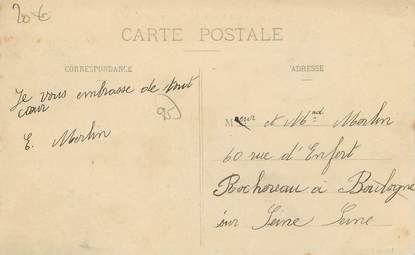 20 €
CARTE POSTALE
CORRESPONDANCE
ADRESSE
Je vous embrasse de tout
cœur
E. Morlin
95
Mœur et Mad Morlin
60 rue d'Enfert
Rochereau à Boulogne
sur Seine Seine